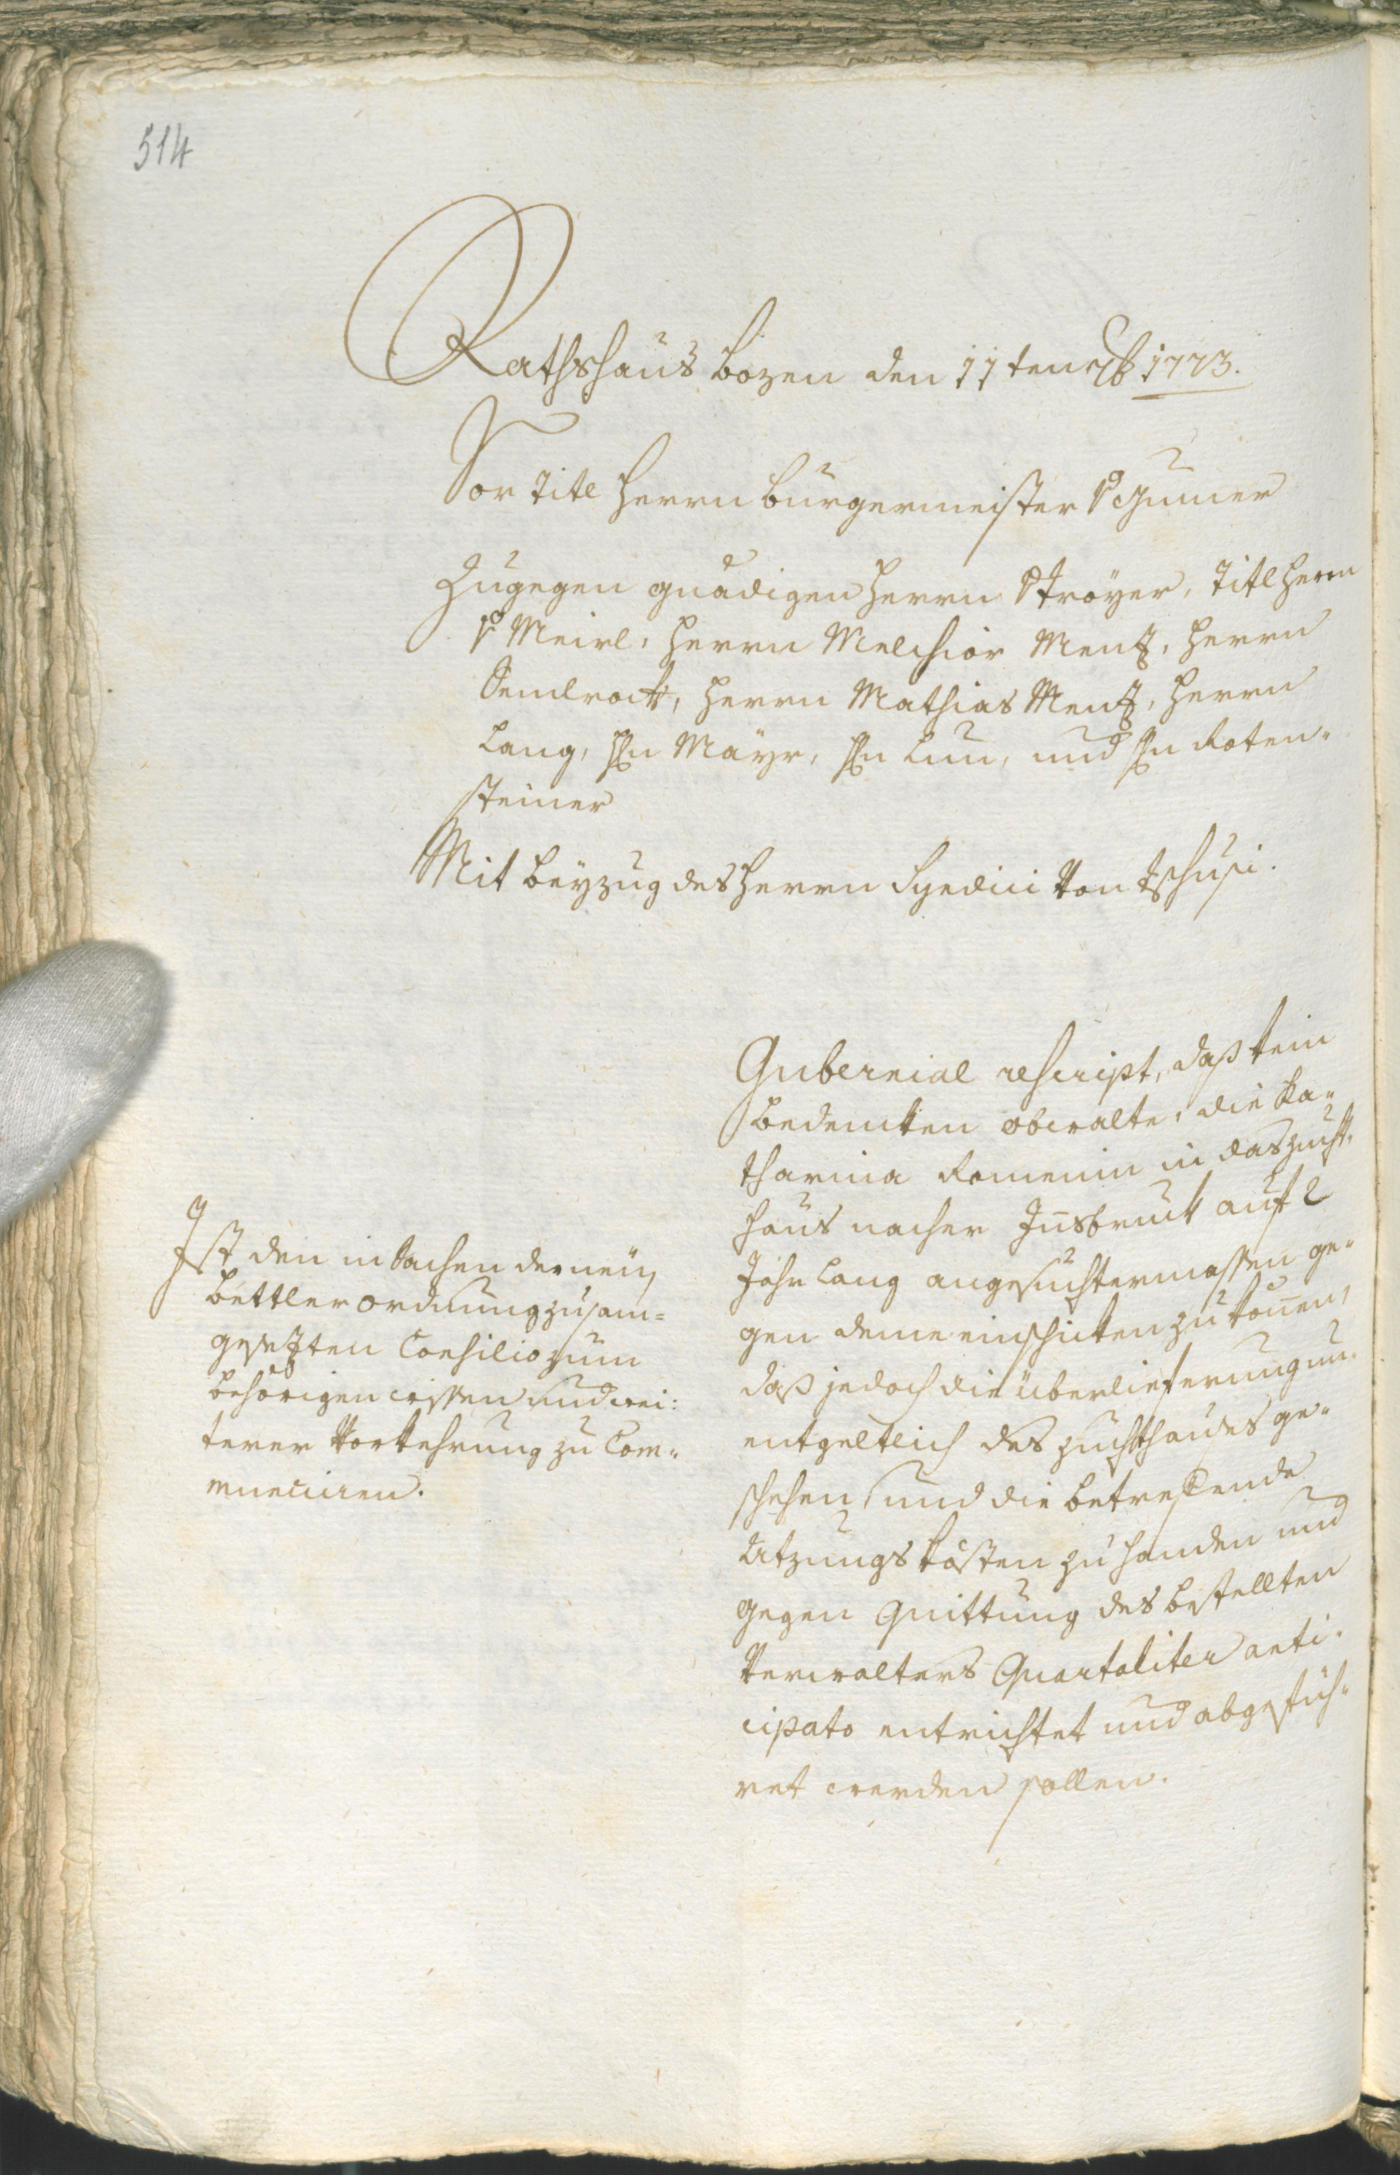 514
Rathshaus Bozen den 11ten 1773.
Vor Titl Herrn Burgermeister v Gumer
Zugegen gnädigen Herrn v Troyer, Titl Herrn
v Meirl, Herrn Melchior Menz, Herrn
Semlrock, Herrn Mathias Menz, Herrn
Lang, Hn Mayr, Hn Lun, und Hn Koten-
steiner
Mit Beyzug des Herrn Syndici von Tschusi.
Gubernial rescript, daß kein
Bedenken obwalte, die Ka-
tharina Romenin in das Zucht-
haus nacher Insbruck auf 2
Jahr lang angesuchtermassen ge-
gen deme einschicken zu können,
daß jedoch die überlieferung un-
entgeltlich des Zuchthauses ge-
schehen, und die betreffende
Atzungskösten zu handen und
gegen Quittung des bestellten
Verwalters Quartaliter anti-
cipato entrichtet und abgefüh-
ret werden sollen.
Ist den in Sachen der neuen
Bettlerordnung zusam-
gesezten Consilio zum
behörigen wissen und wei-
terer Vorkehrung zu Com-
municiren.